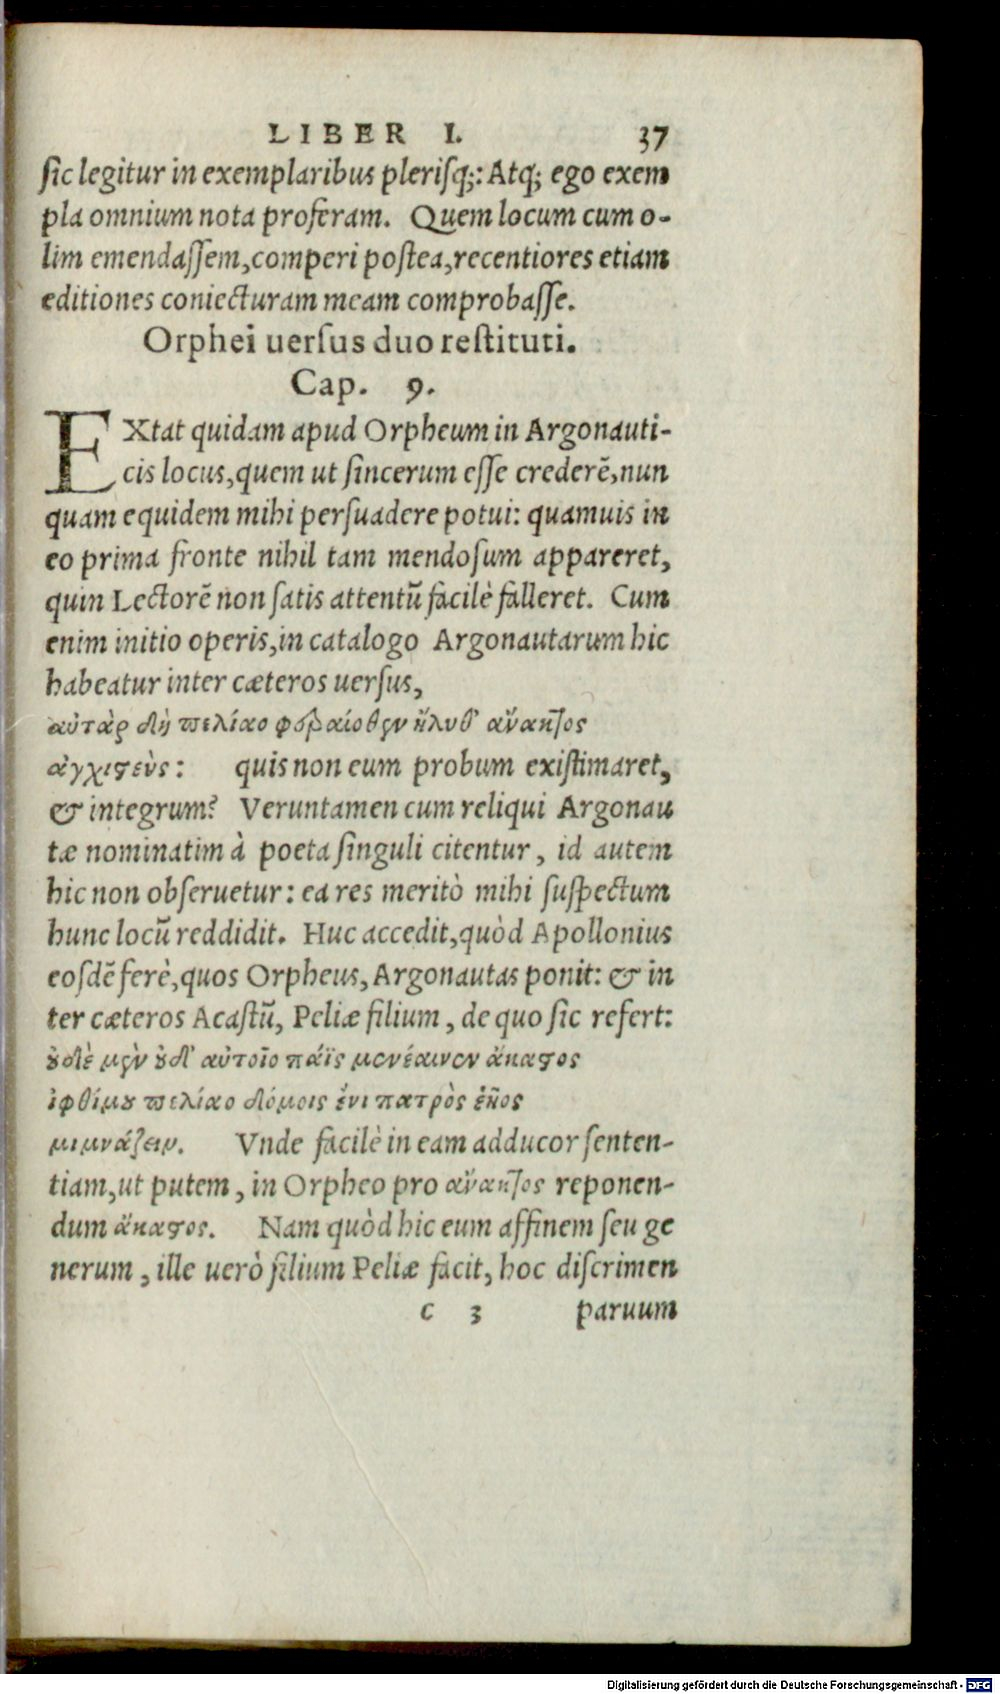 LIBER I. 37
sic legitur in exemplaribus plerisq;: Atq; ego exem
pla omnium nota proferam. Quem locum cum o-
lim emendassem, comperi postea, recentiores etiam
editiones coniecturam meam comprobasse.
Orphei uersus duo restituti.
Cap. 9.
EXtat quidam apud Orpheum in Argonauti-
cis locus, quem ut sincerum esse crederē, nun
quam equidem mihi persuadere potui: quamuis in
eo prima fronte nihil tam mendosum appareret,
quin Lectorē non satis attentū facilè falleret. Cum
enim initio operis, in catalogo Argonautarum hic
habeatur inter cæteros uersus,
αὐτὰρ δὴ πελίαο φεραίοθεν ἤλυθ' ἄνακτος
ἀγχιστεὺς: quis non eum probum existimaret,
& integrum? Veruntamen cum reliqui Argonau
tæ nominatim à poeta singuli citentur, id autem
hic non obseruetur: ea res meritò mihi suspectum
hunc locū reddidit. Huc accedit, quòd Apollonius
eosdē ferè, quos Orpheus, Argonautas ponit: & in
ter cæteros Acastū, Peliæ filium, de quo sic refert:
ȣδὲ μὲν ȣδ' αὐτοῖο πάϊς μενέαινεν ἄκαστος
ἰφθίμȣ πελίαο δόμοις ἔνι πατρὸς ἑῆος
μιμνάζειν. Vnde facilè in eam adducor senten-
tiam, ut putem, in Orpheo pro ἄνακτος reponen-
dum ἄκαστος. Nam quòd hic eum affinem seu ge
nerum, ille uerò filium Peliæ facit, hoc discrimen
c 3 paruum
Digitalisierung gefördert durch die Deutsche Forschungsgemeinschaft - DFG